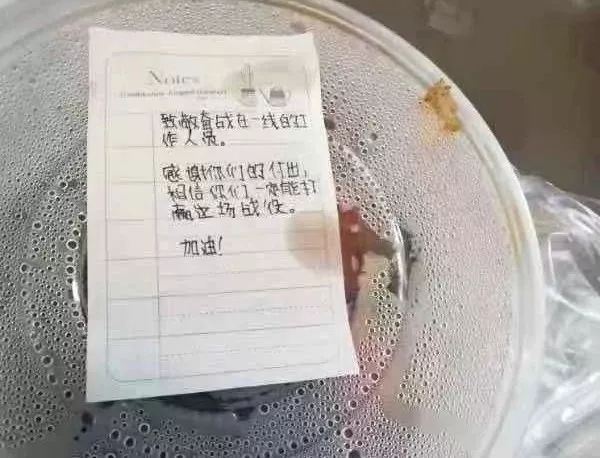 Notes
致敬奋战在一线的工
作人员。
感谢你们的付出，
相信你们一定能打
赢这场战役。
加油！